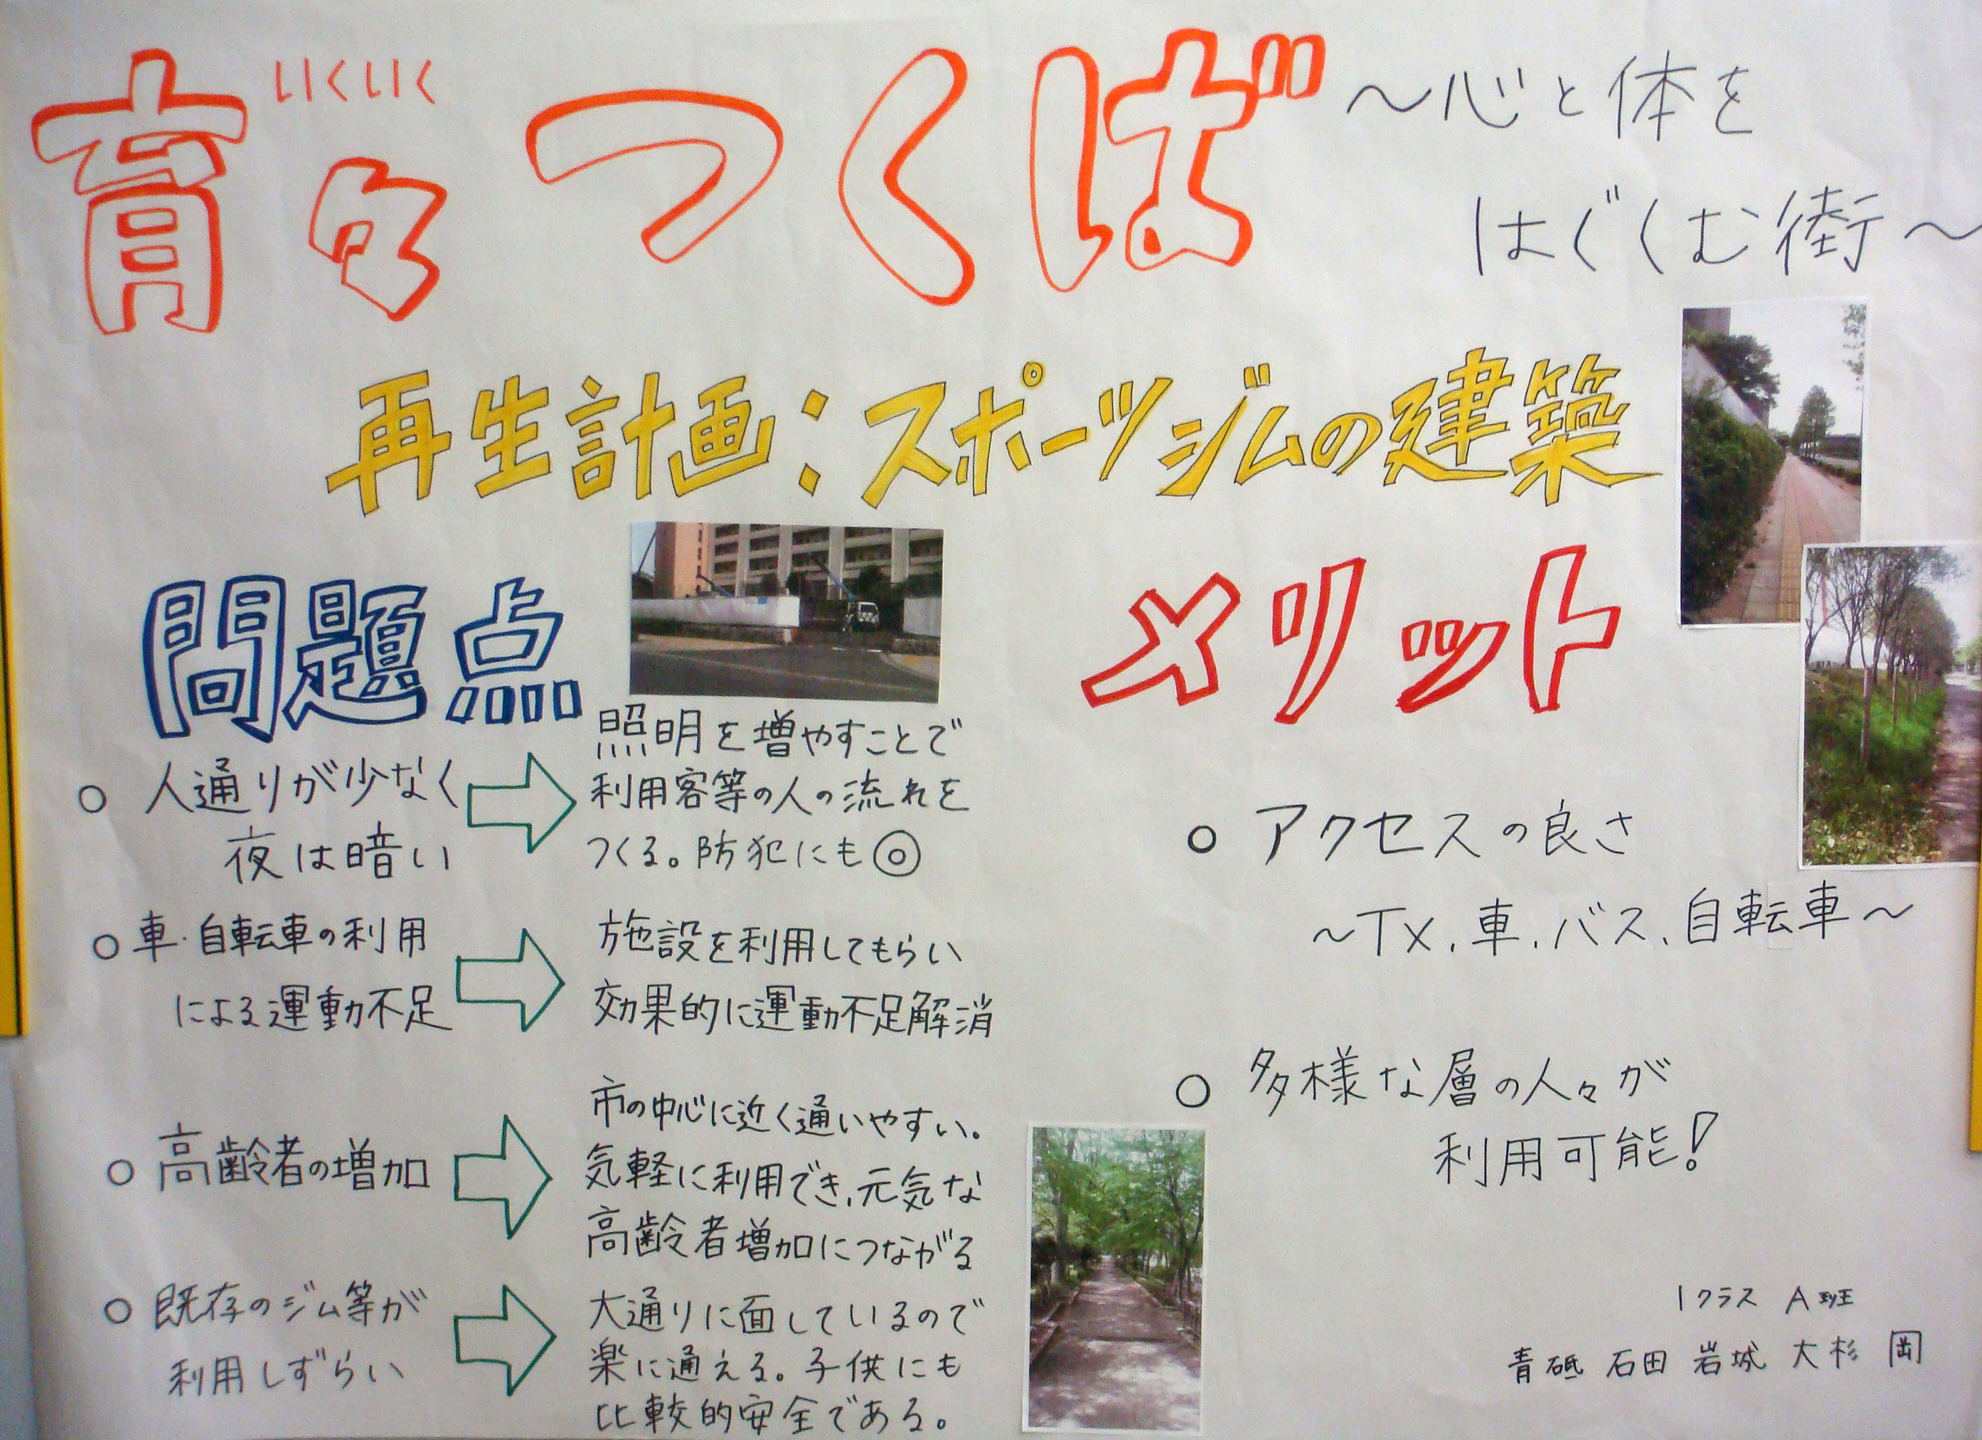 いくいく
育々つくば
～心と体を
はぐくむ街～
再生計画：スポーツジムの建築
問題点
○ 人通りが少なく
夜は暗い
照明を増やすことで
利用客等の人の流れを
つくる。防犯にも◎
○ 車・自転車の利用
による運動不足
施設を利用してもらい
効果的に運動不足解消
○ 高齢者の増加
市の中心に近く通いやすい。
気軽に利用でき、元気な
高齢者増加につながる
○ 既存のジム等が
利用しずらい
大通りに面しているので
楽に通える。子供にも
比較的安全である。
メリット
○ アクセスの良さ
～TX、車、バス、自転車～
○ 多様な層の人々が
利用可能！
1クラス A班
青砥 石田 岩城 大杉 岡